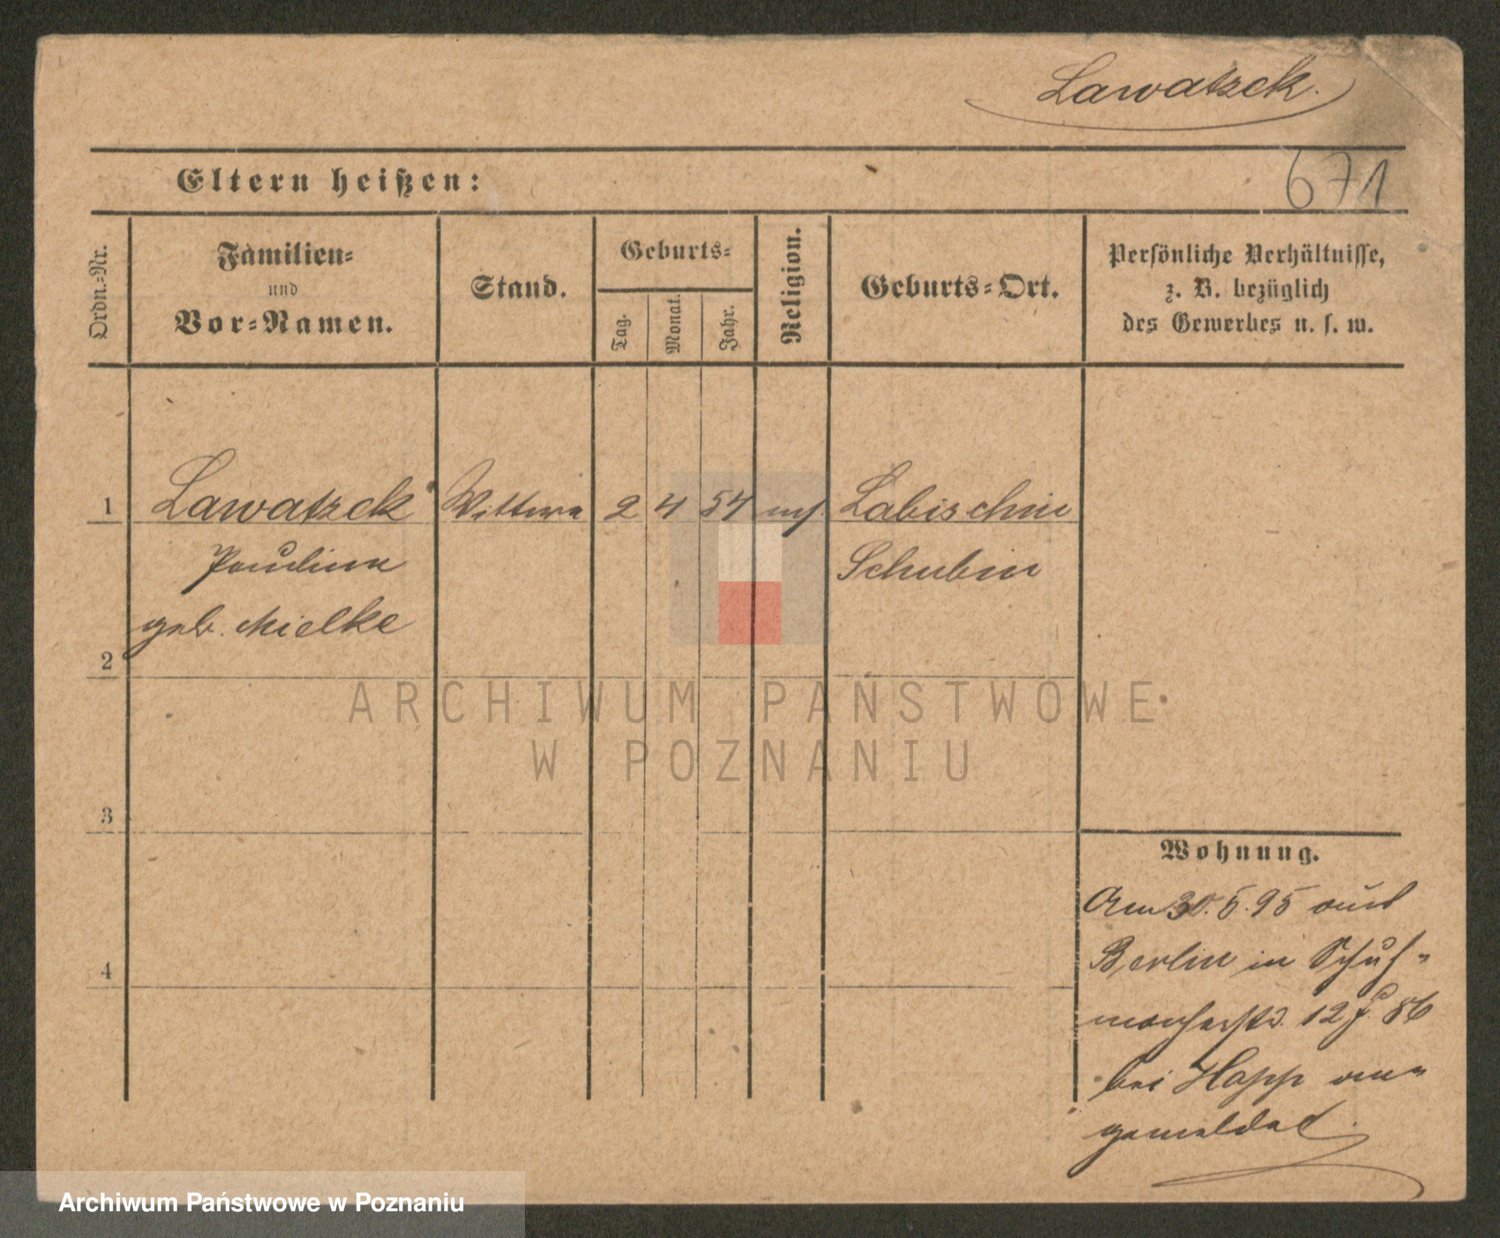 Lawatzck.
671
Eltern heißen:
Ordn.-Nr.
Familien-
und
Vor-Namen.
Stand.
Geburts-
Tag.
Monat.
Jahr.
Religion.
Geburts-Ort.
Persönliche Verhältnisse,
z. B. bezüglich
des Gewerbes u. s. w.
1 Lawatzck Wittwe 2 4 54 Labischin
Paulina Schubin
geb. Mielke
2
3
4
ARCHIWUM PAŃSTWOWE
W POZNANIU
Wohnung.
Am 30. 5. 95 aus
Berlin in
12 86
bei Happ an-
gemeldet.
Archiwum Państwowe w Poznaniu